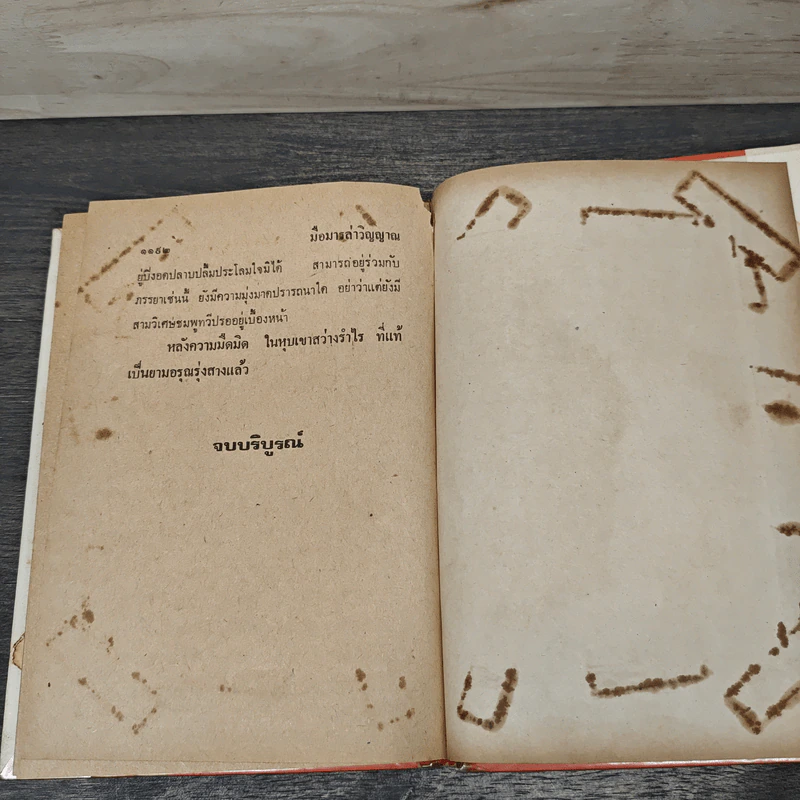 ๑๑๕๒
มือมารล่าวิญญาณ
ยู่บี้งอดปลาบปลื้มประโลมใจมิได้ สามารถอยู่ร่วมกับ
ภรรยาเช่นนี้ ยังมีความมุ่งมาดปรารถนาใด อย่าว่าแต่ยังมี
สามวิเศษชมพูทวีปรออยู่เบื้องหน้า
หลังความมืดมิด ในหุบเขาสว่างรำไร ที่แท้
เป็นยามอรุณรุ่งสางแล้ว
จบบริบูรณ์